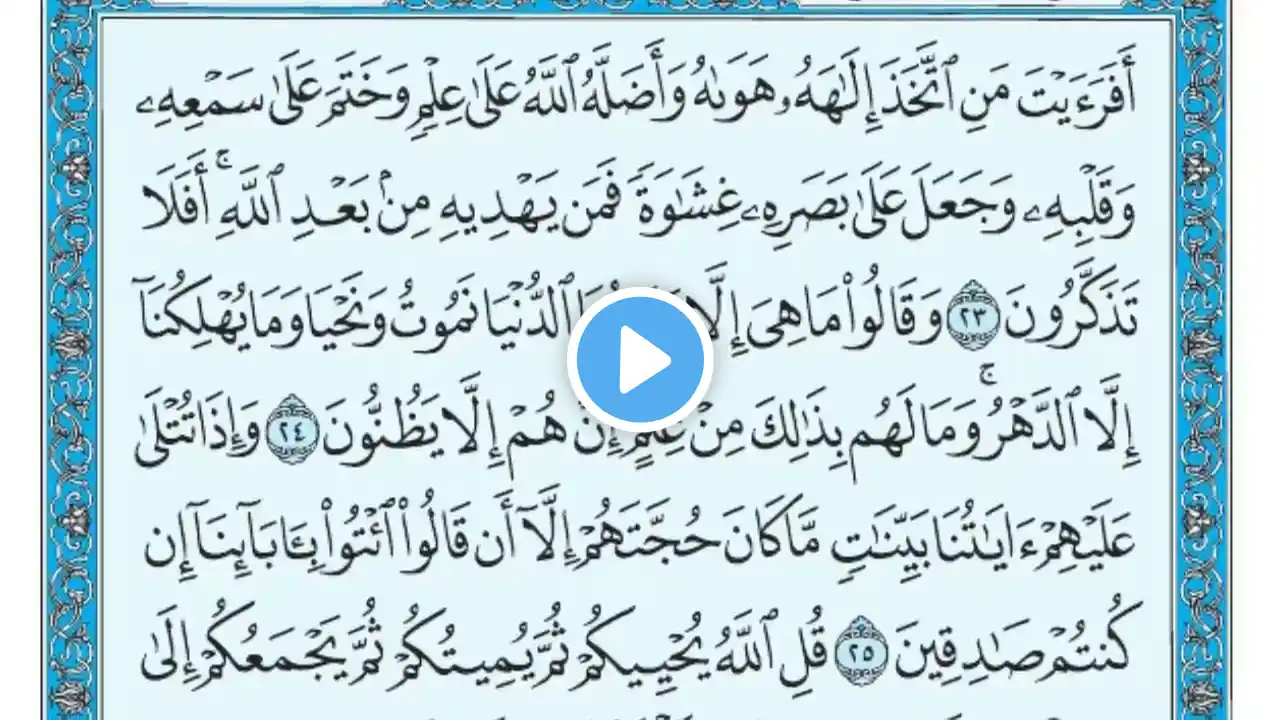 أَفَرَءَيْتَ مَنِ ٱتَّخَذَ إِلَٰهَهُۥ هَوَىٰهُ وَأَضَلَّهُ ٱللَّهُ عَلَىٰ عِلْمٍ وَخَتَمَ عَلَىٰ سَمْعِهِۦ
وَقَلْبِهِۦ وَجَعَلَ عَلَىٰ بَصَرِهِۦ غِشَٰوَةً فَمَن يَهْدِيهِ مِنۢ بَعْدِ ٱللَّهِ ۚ أَفَلَا
تَذَكَّرُونَ ٢٣ وَقَالُوا۟ مَا هِىَ إِلَّا ٱلدُّنْيَا نَمُوتُ وَنَحْيَا وَمَا يُهْلِكُنَآ
إِلَّا ٱلدَّهْرُ ۚ وَمَا لَهُم بِذَٰلِكَ مِنْ عِلْمٍ إِنْ هُمْ إِلَّا يَظُنُّونَ ٢٤ وَإِذَا تُتْلَىٰ
عَلَيْهِمْ ءَايَٰتُنَا بَيِّنَٰتٍ مَّا كَانَ حُجَّتَهُمْ إِلَّآ أَن قَالُوا۟ ٱئْتُوا۟ بِـَٔابَآئِنَآ إِن
كُنتُمْ صَٰدِقِينَ ٢٥ قُلِ ٱللَّهُ يُحْيِيكُمْ ثُمَّ يُمِيتُكُمْ ثُمَّ يَجْمَعُكُمْ إِلَىٰ